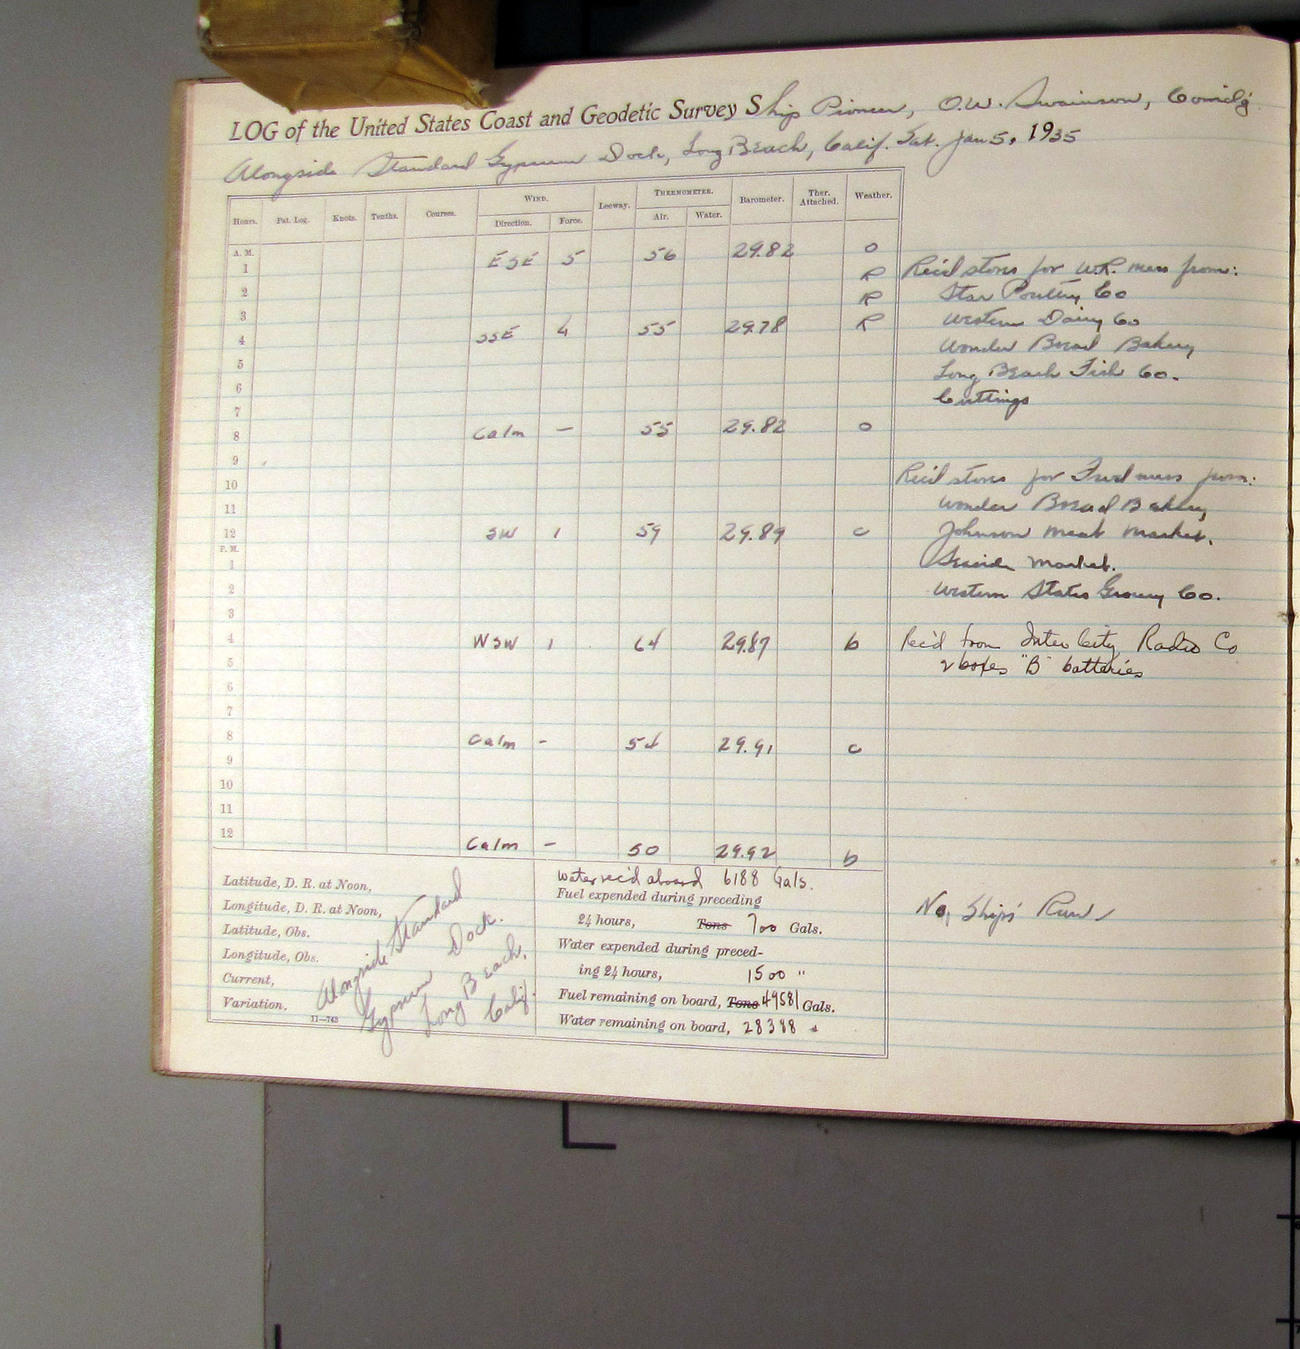 LOG of the United States Coast and Geodetic Survey Ship Pioneer, O.W. Swainson, Comd'g
Alongside Standard Gypsum Dock, Long Beach, Calif. Sat. Jan 5, 1935
Hours. Pat. Log. Knots. Tenths. Courses. WIND. Leeway. THERMOMETER. Barometer. Ther. Attached. Weather.
Direction. Force. Air. Water.
A. M. ESE 5 56 29.82 o
1 R Rec'd stores for W.R. mess from:
2 R Star Poultry Co
3 R Western Dairy Co
4 SSE 4 55 29.78 Wonder Bread Bakery
5 Long Beach Fish Co.
6 Cuttings
7
8 Calm – 55 29.82 o
9
10 Rec'd stores for Fwd mess from:
11 Wonder Bread Bakery
12 SW 1 59 29.89 c Johnson Meat Market.
P. M.
1 Seaside Market.
2 Western States Grocery Co.
3
4 WSW 1 64 29.87 b Rec'd from Inter City Radio Co
5 2 boxes "B" batteries
6
7
8 Calm - 54 29.91 c
9
10
11
12 Calm - 50 29.92 b
Latitude, D. R. at Noon,
Longitude, D. R. at Noon,
Latitude, Obs.
Longitude, Obs.
Current,
Variation.
11—743
Alongside Standard
Gypsum Dock.
Long Beach,
Calif.
Water rec'd aboard 6188 Gals.
Fuel expended during preceding
24 hours, Tons 700 Gals.
Water expended during preced-
ing 24 hours, 1500 "
Fuel remaining on board, Tons 49581 Gals.
Water remaining on board, 28388 "
No, Ships' Run